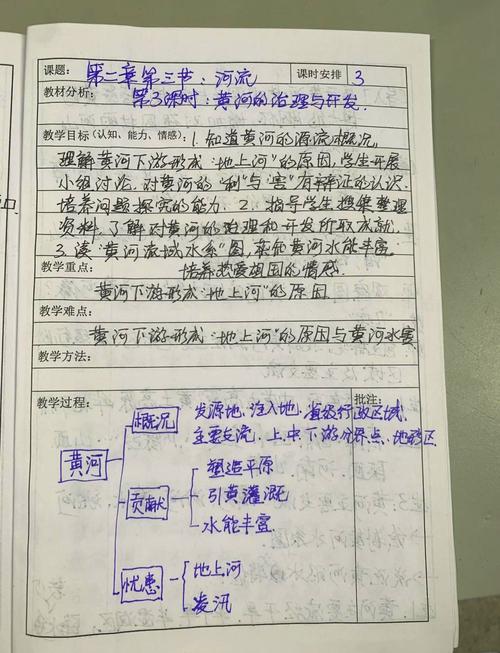 课题: 第二章第三节:河流 课时安排 3
教材分析: 第3课时:黄河的治理与开发.
教学目标(认知、能力、情感): 1.知道黄河的源流概况,
理解黄河下游形成“地上河”的原因,学生开展
小组讨论,对黄河的“利”与“害”有辩证的认识.
培养问题探究的能力. 2.指导学生搜集整理
资料,了解对黄河的治理和开发所取成就.
3.读“黄河流域水系”图,黄河水能丰富.
培养热爱祖国的情感.
教学重点:
黄河下游形成“地上河”的原因.
教学难点:
黄河下游形成“地上河”的原因与黄河水害
教学方法:
教学过程: 批注:
黄河
概况 发源地、注入地、省级行政区域、
主要支流、上、中、下游分界点、地形区
贡献 塑造平原
引黄灌溉
水能丰富
忧患 地上河
凌汛